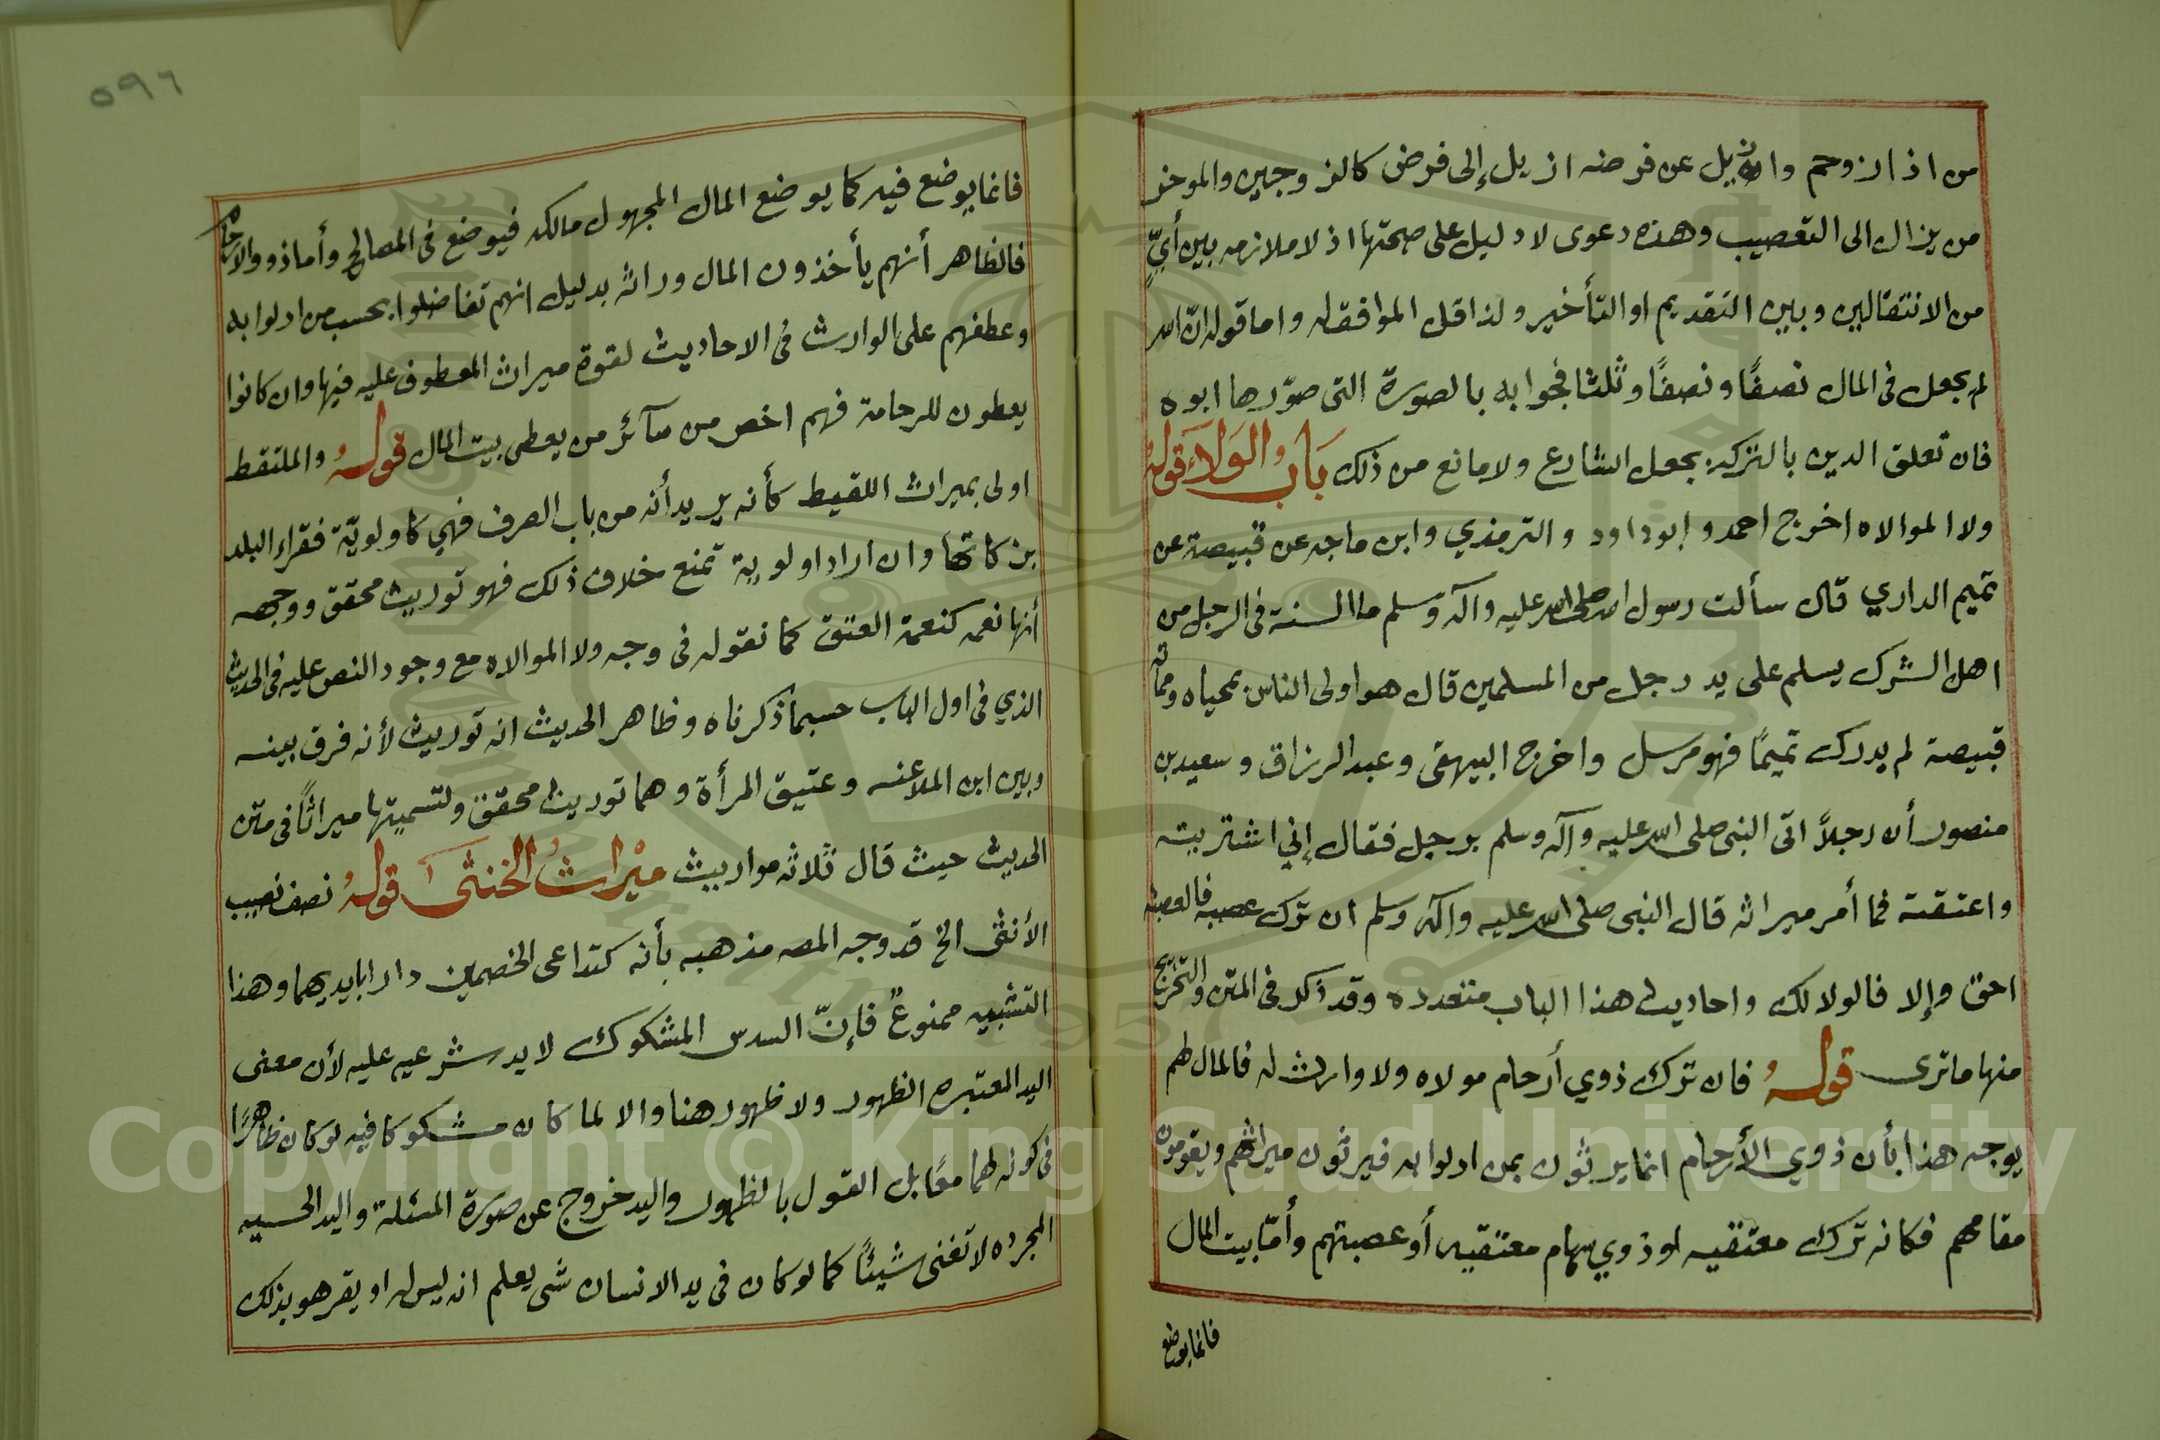 من اذا زوحم وان زيل عن فرضه ازيل إلى فرض كالزوجين والموخر
من يزال الى التعصيب وهذه دعوى لا دليل على صحتها اذ لا ملازمه بين أيٍّ
من الانتقالين وبين التقديم او التأخير ولذا قل الموافق له واما قوله انّ الله
لم يجعل في المال نصفًا ونصفًا وثلثا فجوابه بالصورة التي صوّرها ابوه
فان تعلق الدين بالتركه بجعل الشارع ولا مانع من ذلك بَابُ والوَلَاءِ قولهُ
ولا الموالاه اخرج احمد وابوداود والترمذي وابن ماجه عن قبيصة عن
تميم الداري قال سألت رسول الله صلى الله عليه وآله وسلم ما السنة في الرجل من
اهل الشرك يسلم على يد رجل من المسلمين قال هو اولى الناس بمحياه ومماته
قبيصة لم يدرك تميمًا فهو مرسل واخرج البيهقي وعبد الرزاق وسعيد بن
منصور أن رجلاً اتى النبي صلى الله عليه وآله وسلم برجل فقال إني اشتريته
واعتقته فما أمر ميراثه قال النبي صلى الله عليه وآله وسلم ان ترك عصبه فالعصبة
احق وإلا فالولا لك واحاديث هذا الباب متعدده وقد ذكر في المتن والتخريج
منها ما ترى قولهُ فان ترك ذوي أرحام مولاه ولا وارث له فالمال لهم
يوجه هذا بأن ذوي الأرحام انما يرثون بمن ادلوا به فيرثون ميراثهم ويقومون
مقامهم فكانه ترك معتقيه او ذوي سهام معتقيه أو عصبتهم وأمّا بيت المال
فانما يوضع
٥٩٦
فانما يوضع فيه كما يوضع المال المجهول مالكه فيوضع في المصالح وأما ذوو الارحام
فالظاهر أنهم يأخذون المال وراثه بدليل انهم تفاضلوا بحسب من ادلوا به
وعطفهم على الوارث في الاحاديث لقوة ميراث المعطوف عليه فيها وان كانوا
يعطون للرحامة فهم اخص من سآئر من يعطى بيت المال قولهُ والملتقط
اولى بميراث اللقيط كأنه يريد أنه من باب الصرف فهي كاولويّة فقراء البلد
بزكاتها وان اراد اولوية تمنع خلاف ذلك فهو توريث محقق ووجهه
أنها نعمه كنعمة العتق كما نقوله في وجه ولا الموالاه مع وجود النص عليه في الحديث
الذي في اول الباب حسبما ذكرناه وظاهر الحديث انه توريث لأنه فرق بينه
وبين ابن الملاعنه وعتيق المرأة وهما توريث محقق ولتسميتها ميراثاً في متن
الحديث حيث قال ثلاثه مواريث ميْراثُ الخنثى قولهُ نصف نصيب
الأنثى الخ قد وجه المصه مذهبه بأنه كتداعى الخصمين دارا بايديهما وهذا
التشبيه ممنوعٌ فإنّ السدس المشكوك لا يد شرعيه عليه لأن معنى
اليد المعتبره الظهور ولا ظهور هنا والا لما كان مشكوكا فيه لو كان ظاهرًا
في كونه لهما معًا بل القول بالظهور واليد خروج عن صورة المسئلة واليد الحسيه
المجرده لا تغنى شيئًا كما لو كان في يد الانسان شي يعلم انه ليس له او يقر هو بذلك
Copyright © King Saud University